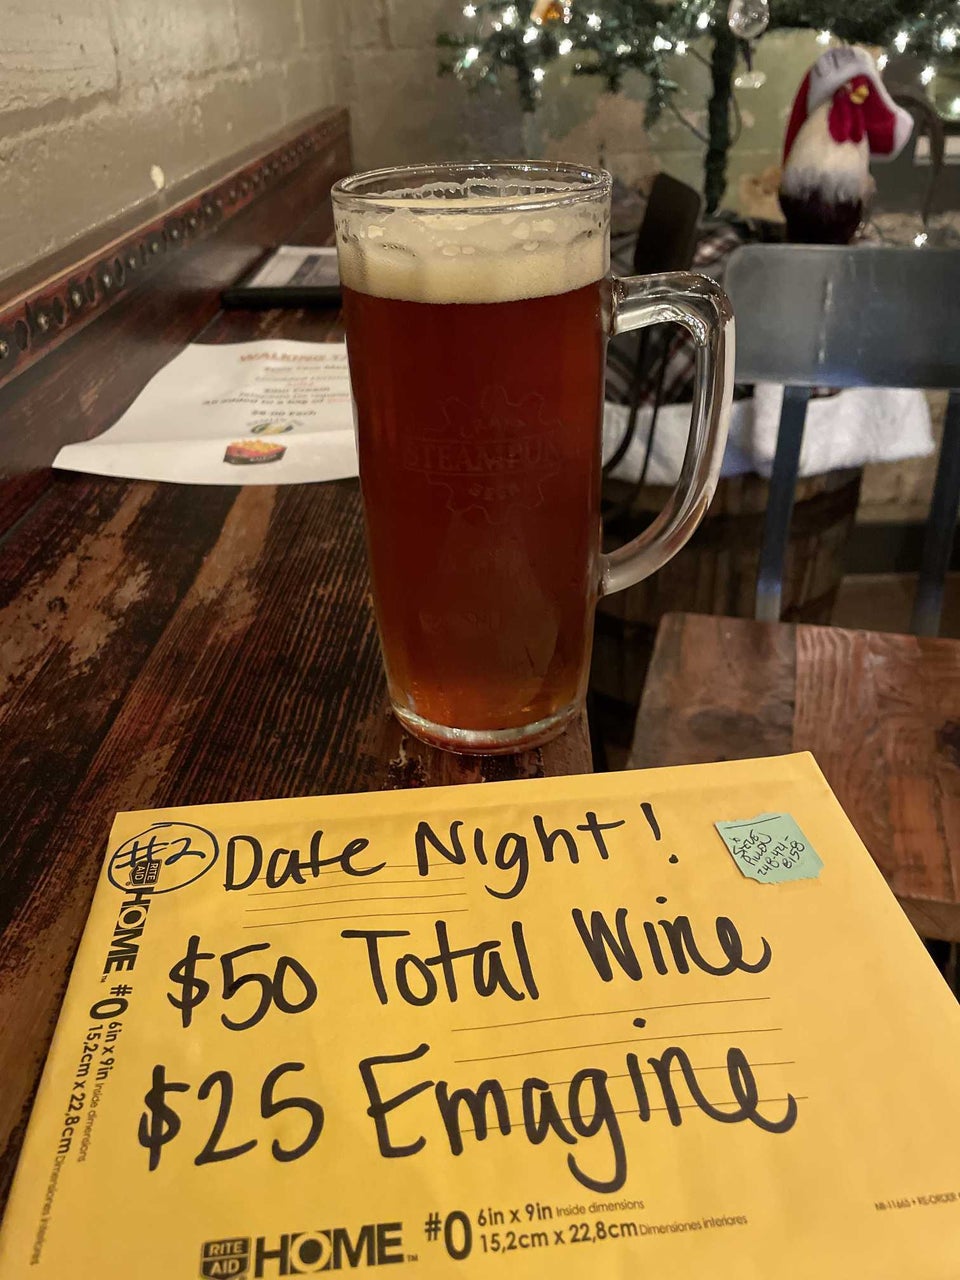 WALKING
$8.00 Each
CRAFT
STEAMPUNK
BEER
#2 Date Night!
$50 Total Wine
$25 Emagine
RITE AID HOME™ #0 6in x 9in Inside dimensions
15,2cm x 22,8cm Dimensiones interiores
RITE AID HOME™ #0 6in x 9in Inside dimensions
15,2cm x 22,8cm Dimensiones interiores